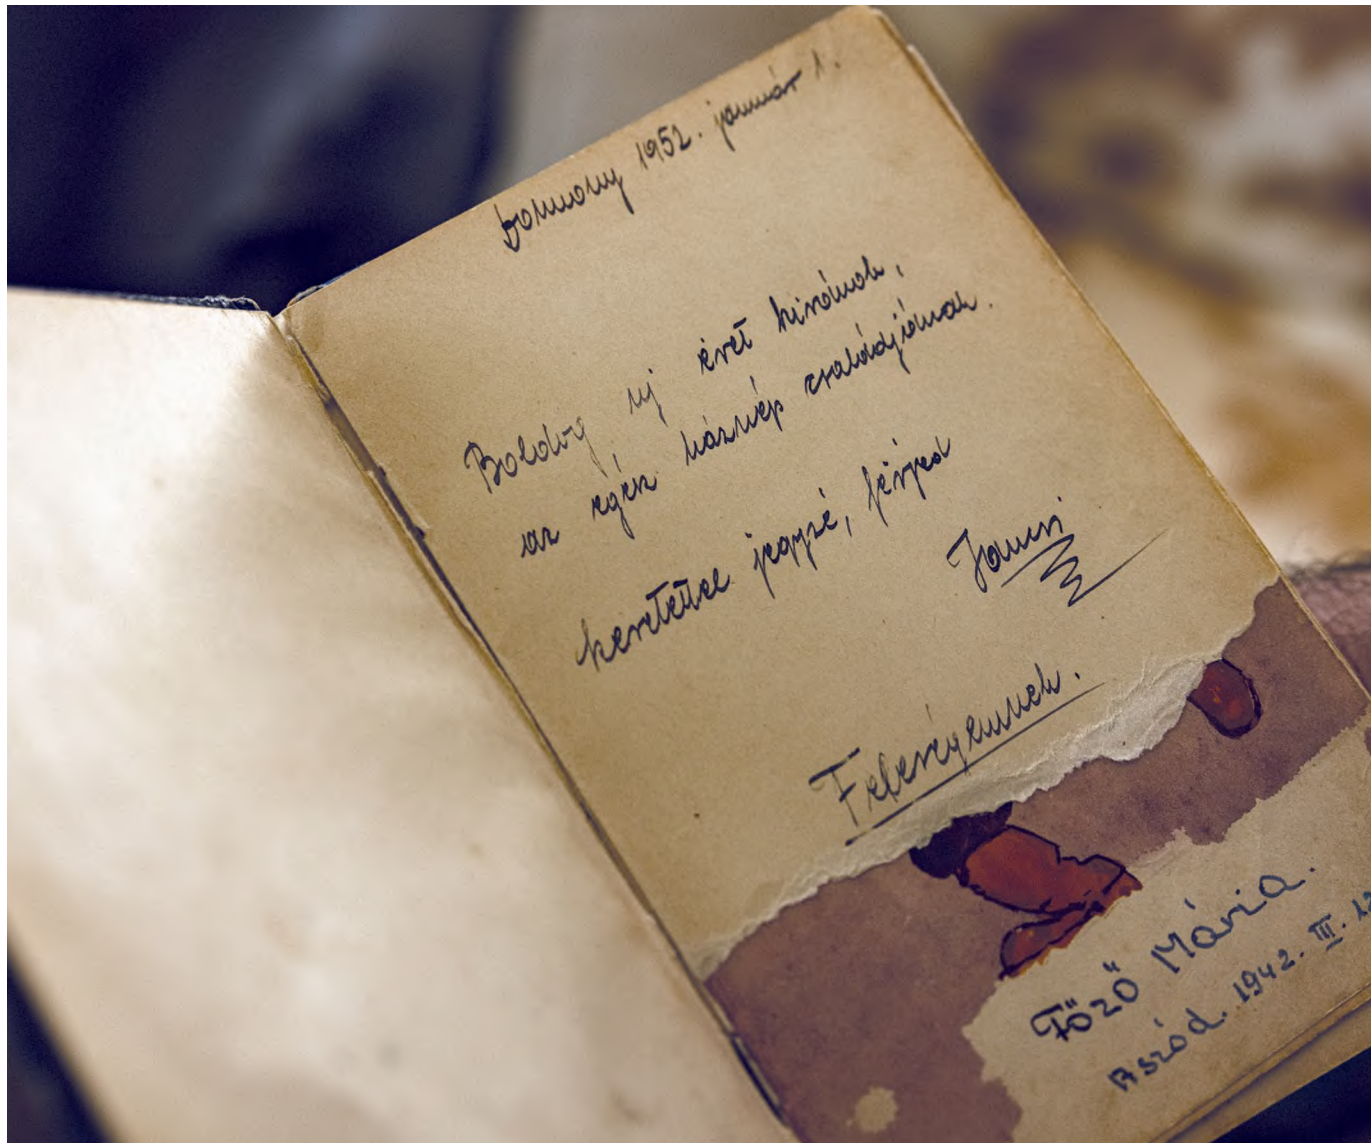 Domony 1952. január 1.
Boldog uj évet kivánok,
az egész háznép családjának.
szeretettel jegyzé, férjed
Jancsi
Feleségemnek.
Főző Mária.
Aszód. 1942. III. 12